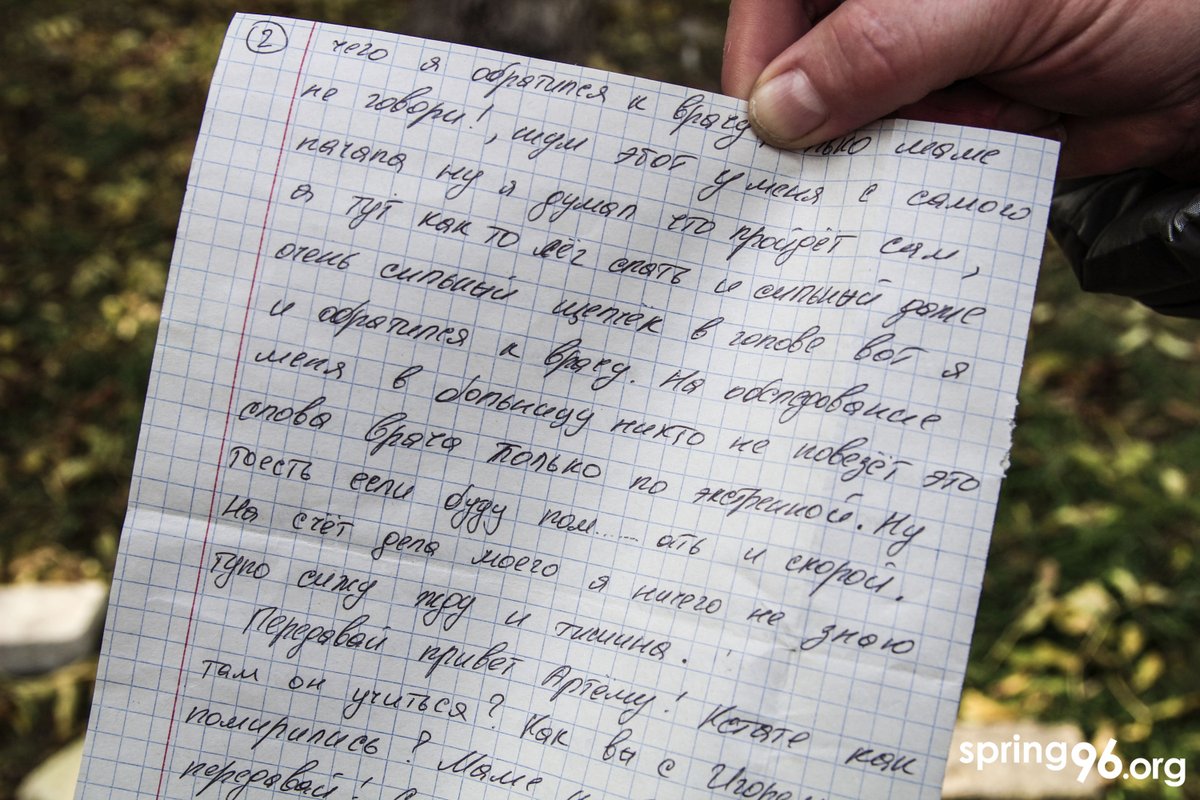 2
чего я обратился к врачу, только маме
не говори!, шум этот у меня с самого
начала ну я думал что пройдёт сам,
а тут как то лёг спать и сильный даже
очень сильный щепчёк в голове вот я
и обратился к врачу. На обследование
меня в больницу никто не повезёт это
слова врача только по экстренной. Ну
тоесть если буду пом...... ать и скорой.
На счёт дела моего я ничего не знаю
тупо сижу жду и тишина.
Передавай привет Артёму! Кстате как
там он учиться? Как вы с Игорем
помирились? Маме
передавай!
spring96.org